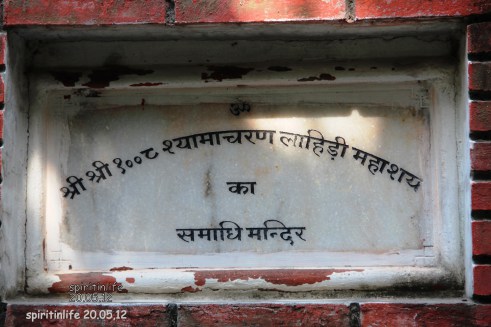 ॐ
श्री श्री १००८ श्यामाचरण लाहिड़ी महाशय
का
समाधि मन्दिर
spiritinlife
20.05.12
spiritinlife 20.05.12